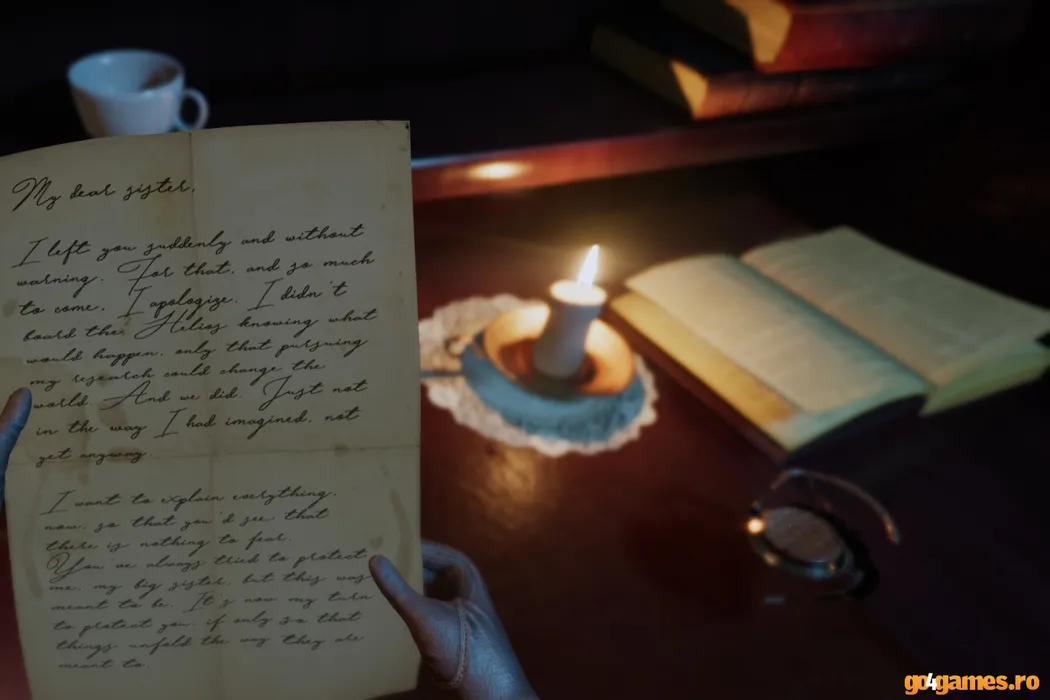 My dear sister,
I left you suddenly and without
warning. For that, and so much
to come, I apologize. I didn't
board the Helios knowing what
would happen, only that pursuing
my research could change the
world. And we did. Just not
in the way I had imagined, not
yet anyway.
I want to explain everything,
now, so that you'd see that
there is nothing to fear.
You've always tried to protect
me, my big sister, but this was
meant to be. It's now my turn
to protect you, if only so that
things unfold the way they are
meant to.
go4games.ro